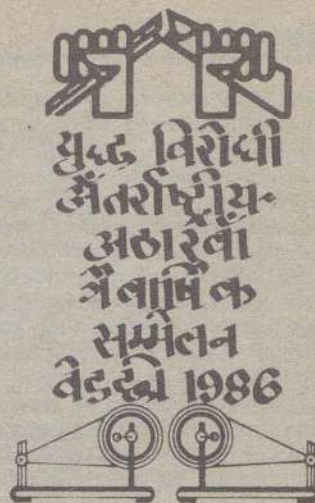 युध्द विरोधी
अंतर्राष्ट्रीय-
अठारवाँ
त्रैवार्षिक
सम्मेलन
वेडछी 1986